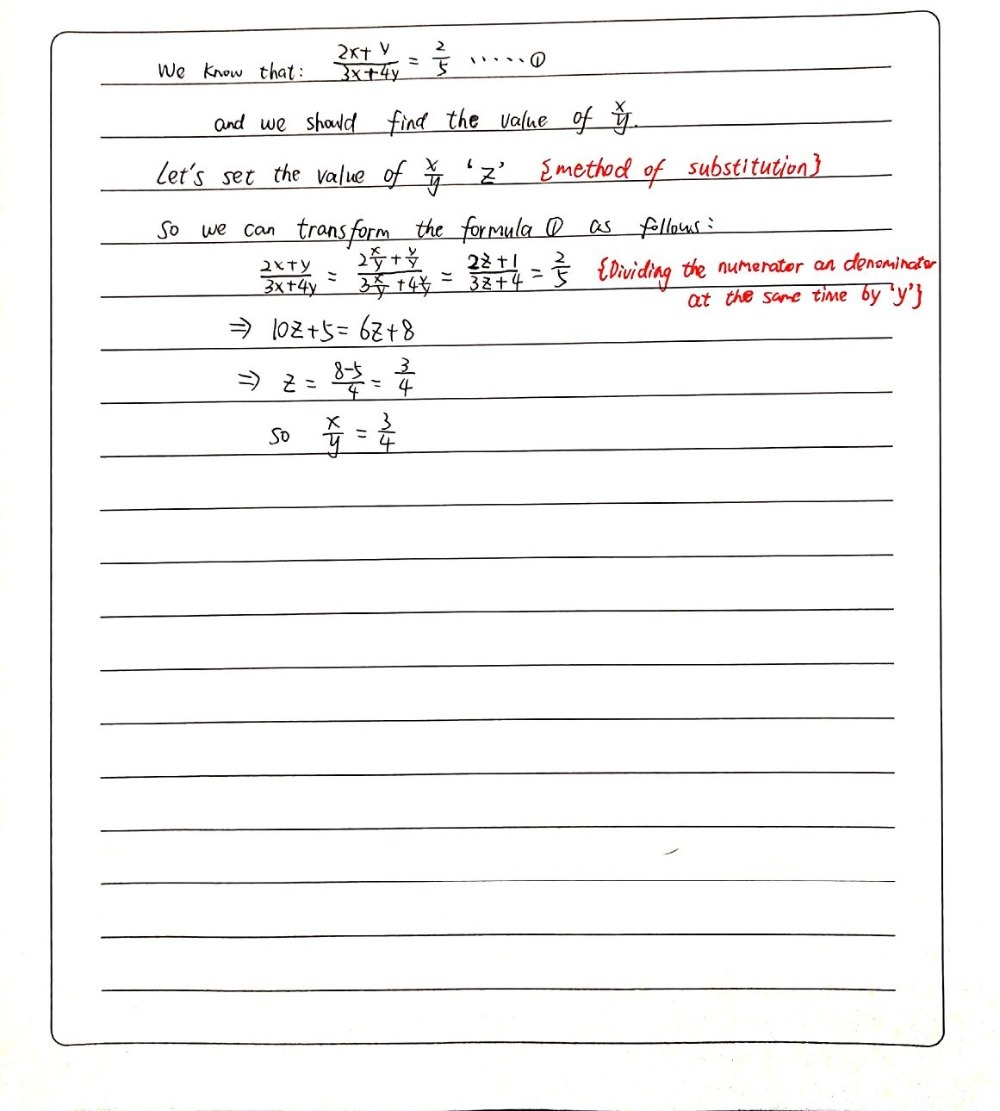 We know that: (2x+y)/(3x+4y) = 2/5 ·····①
and we should find the value of x/y.
Let's set the value of x/y 'z' {method of substitution}
So we can transform the formula ① as follows:
(2x+y)/(3x+4y) = (2x/y+y/y)/(3x/y+4y/y) = (2z+1)/(3z+4) = 2/5 {Dividing the numerator an denominator
at the same time by 'y'}
⇒ 10z+5=6z+8
⇒ z = (8-5)/4 = 3/4
so x/y = 3/4